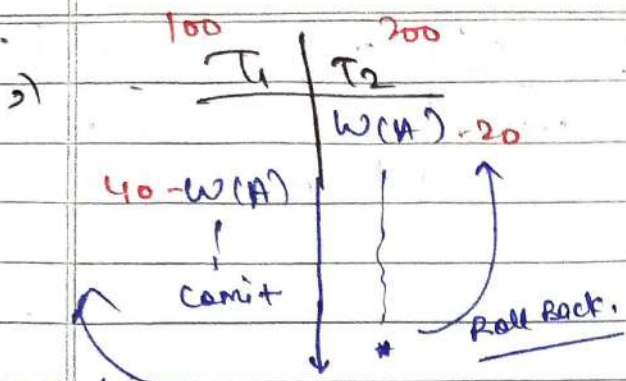 100 200
2) T1 T2
W(A) - 20
40 - W(A)
Comit
* Roll Back.